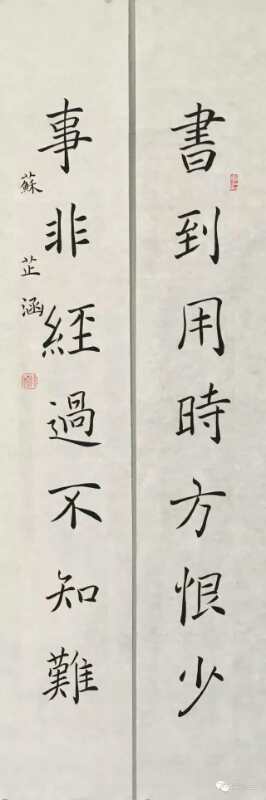 書到用時方恨少
事非經過不知難
蘇芷涵